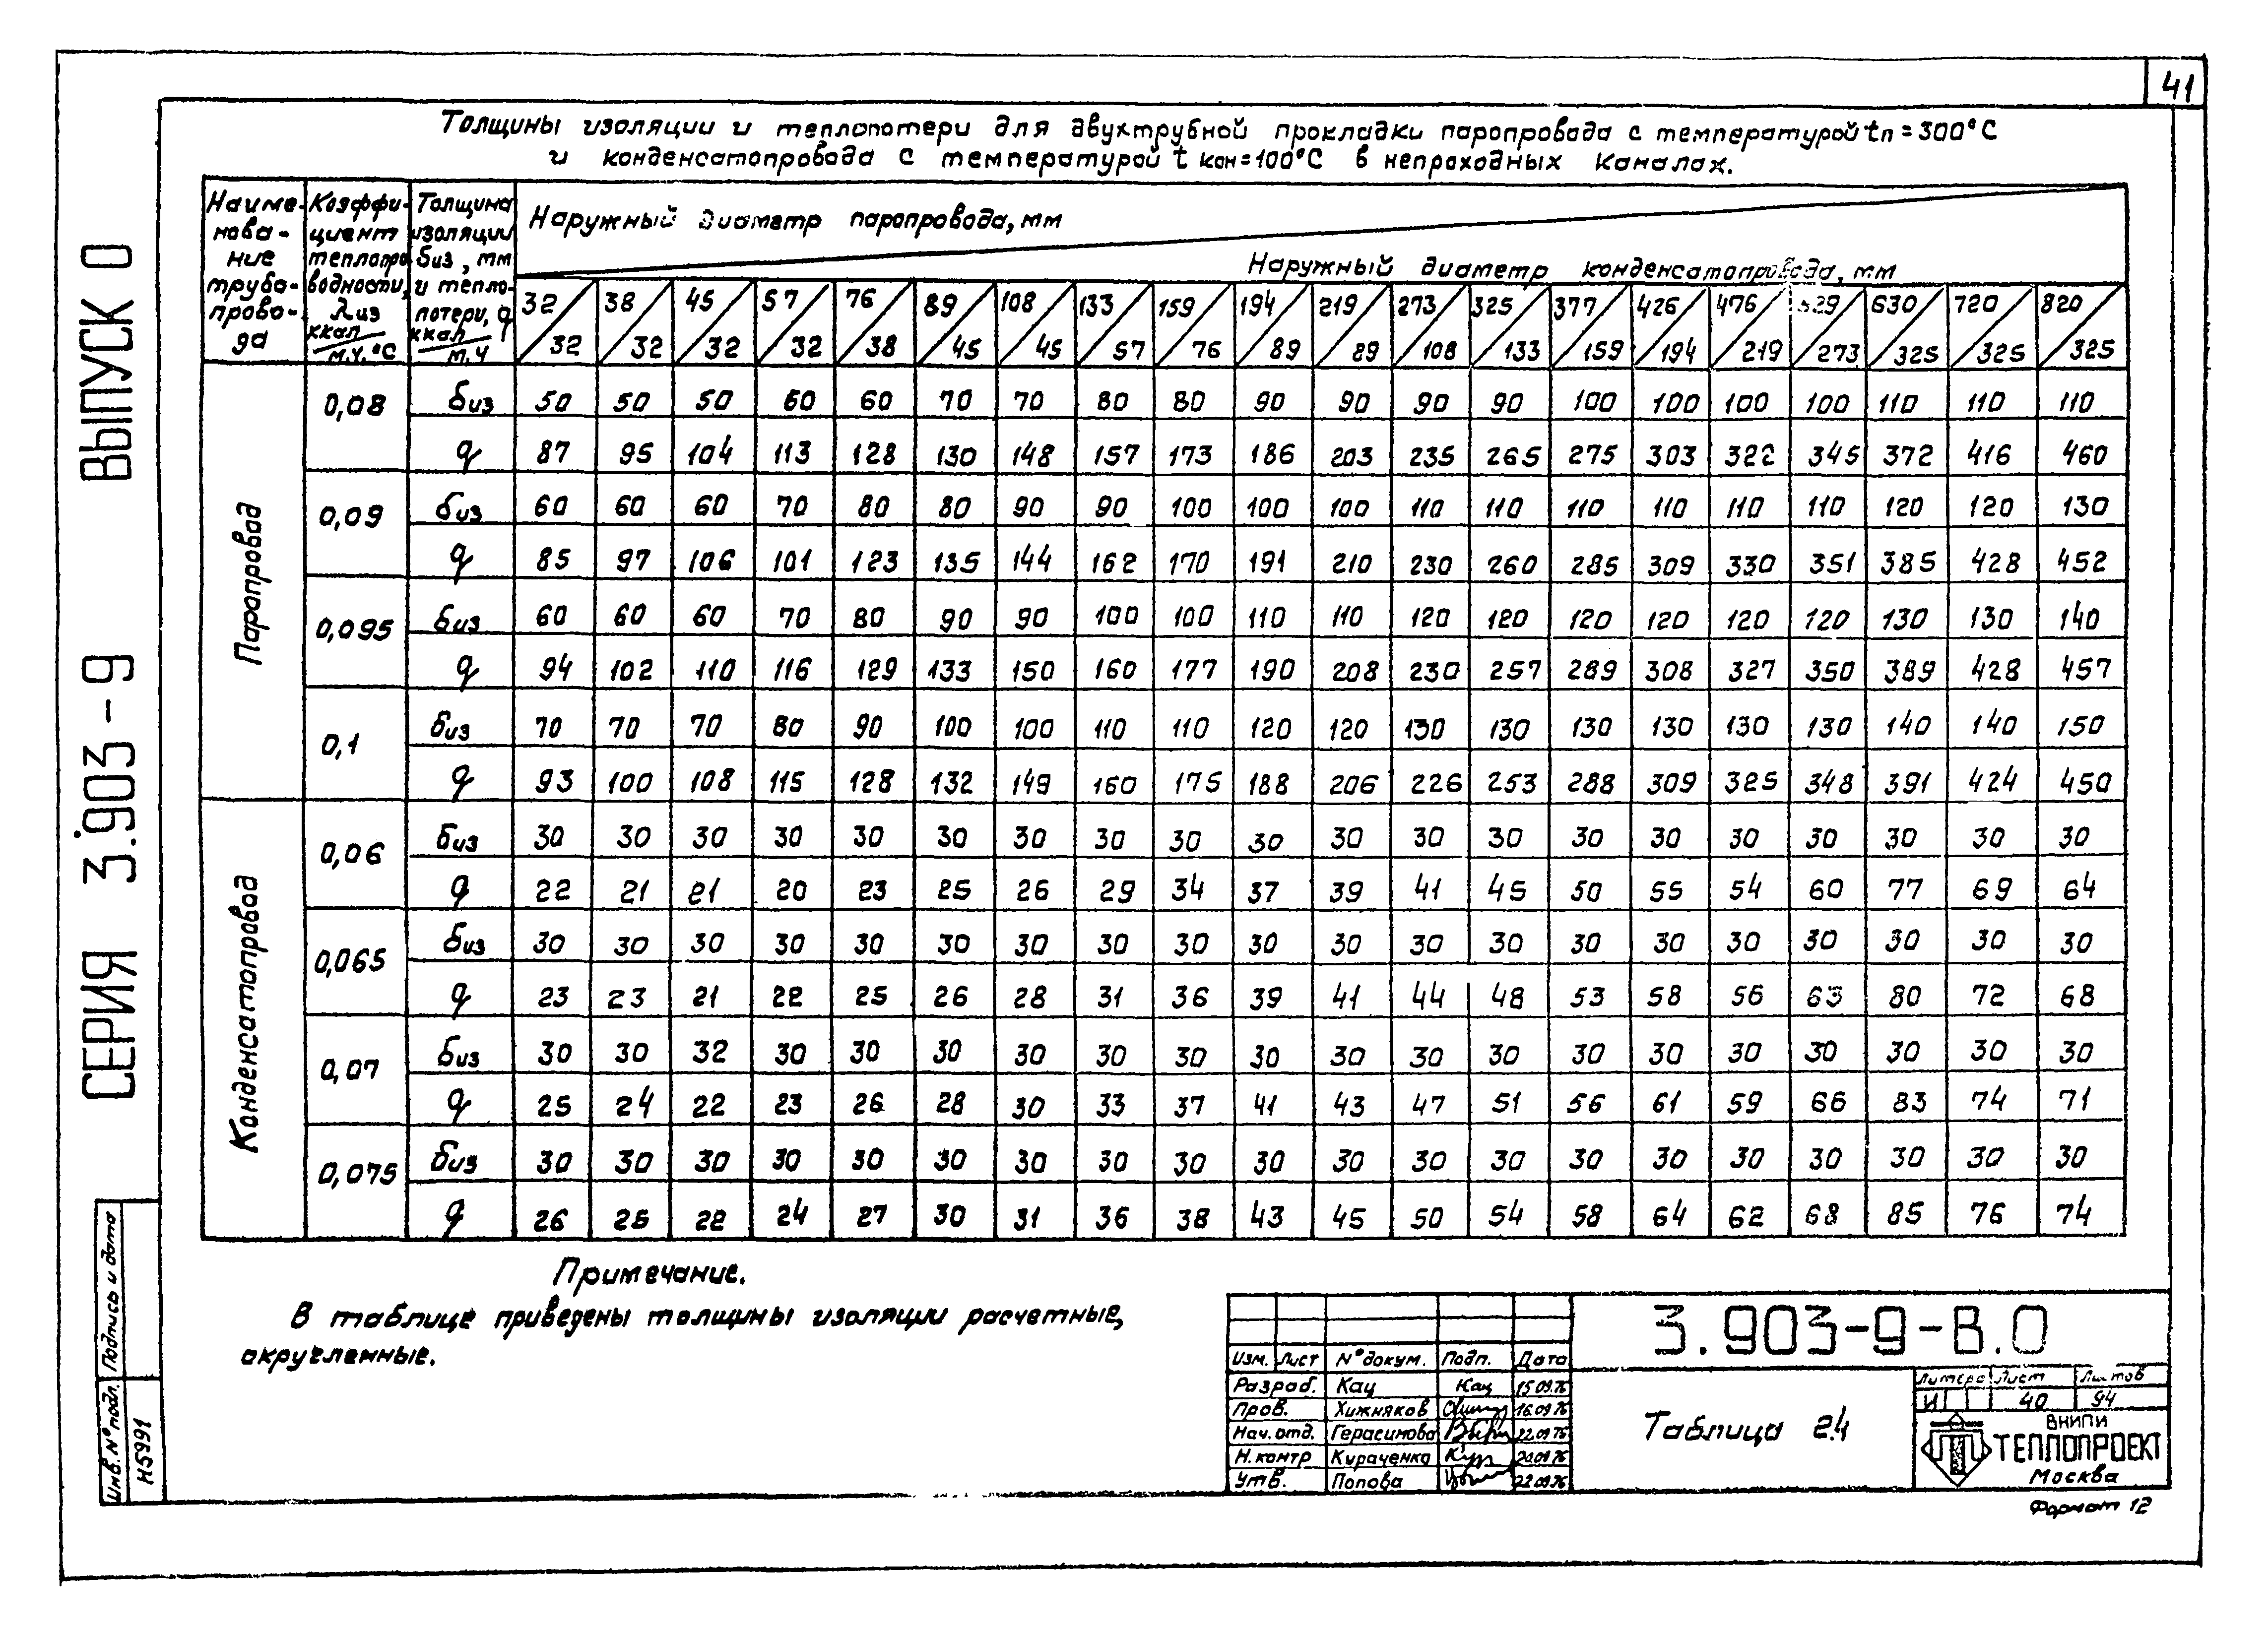 41
СЕРИЯ 3.903-9 ВЫПУСК 0
Толщины изоляции и теплопотери для двухтрубной прокладки паропровода с температурой tп=300°С
и конденсатопровода с температурой t кон=100°С в непроходных каналах.
Наименование трубопровода
Коэффициент теплопроводности, λиз ккал/м.ч.°С
Толщина изоляции биз, мм и теплопотери, q ккал/м.ч
Наружный диаметр паропровода, мм
Наружный диаметр конденсатопровода, мм
32/32 38/32 45/32 57/32 76/38 89/45 108/45 133/57 159/76 194/89 219/89 273/108 325/133 377/159 426/194 476/219 529/273 630/325 720/325 820/325
Паропровод
0,08 биз 50 50 50 60 60 70 70 80 80 90 90 90 90 100 100 100 100 110 110 110
q 87 95 104 113 128 130 148 157 173 186 203 235 265 275 303 322 345 372 416 460
0,09 биз 60 60 60 70 80 80 90 90 100 100 100 110 110 110 110 110 110 120 120 130
q 85 97 106 101 123 135 144 162 170 191 210 230 260 285 309 330 351 385 428 452
0,095 биз 60 60 60 70 80 90 90 100 100 110 110 120 120 120 120 120 120 130 130 140
q 94 102 110 116 129 133 150 160 177 190 208 230 257 289 308 327 350 389 428 457
0,1 биз 70 70 70 80 90 100 100 110 110 120 120 130 130 130 130 130 130 140 140 150
q 93 100 108 115 128 132 149 160 175 188 206 226 253 288 309 325 348 391 424 450
Конденсатопровод
0,06 биз 30 30 30 30 30 30 30 30 30 30 30 30 30 30 30 30 30 30 30 30
q 22 21 21 20 23 25 26 29 34 37 39 41 45 50 55 54 60 77 69 64
0,065 биз 30 30 30 30 30 30 30 30 30 30 30 30 30 30 30 30 30 30 30 30
q 23 23 21 22 25 26 28 31 36 39 41 44 48 53 58 56 63 80 72 68
0,07 биз 30 30 32 30 30 30 30 30 30 30 30 30 30 30 30 30 30 30 30 30
q 25 24 22 23 26 28 30 33 37 41 43 47 51 56 61 59 66 83 74 71
0,075 биз 30 30 30 30 30 30 30 30 30 30 30 30 30 30 30 30 30 30 30 30
q 26 25 22 24 27 30 31 36 38 43 45 50 54 58 64 62 68 85 76 74
Примечание.
В таблице приведены толщины изоляции расчетные,
округленные.
Изм. Лист №докум. Подп. Дата
Разраб. Кац Кац 15.09.76
Пров. Хижняков 16.09.76
Нач. отд. Герасимова
Н.контр Кураченко Кур 20.09.76
Утв. Попова 22.09.76
3.903-9-В.0
Таблица 24
Литера Лист Листов
И 40 94
ВНИПИ
ТЕПЛОПРОЕКТ
Москва
Формат 12
Подпись и дата
Инв.№подл.
Н5991